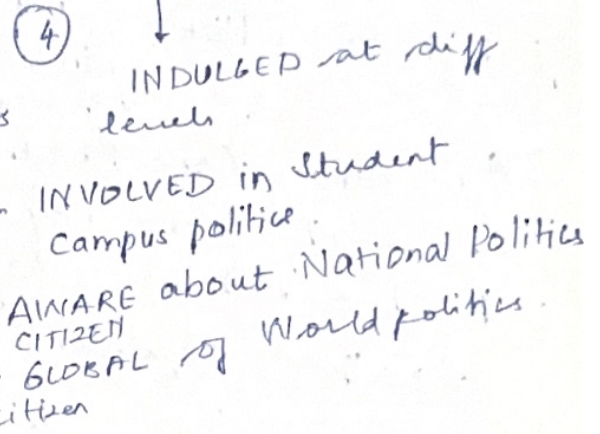 4
INDULGED at diff
s levels
INVOLVED in Student
Campus politics.
AWARE about National Politics
CITIZEN
GLOBAL of World politics.
citizen